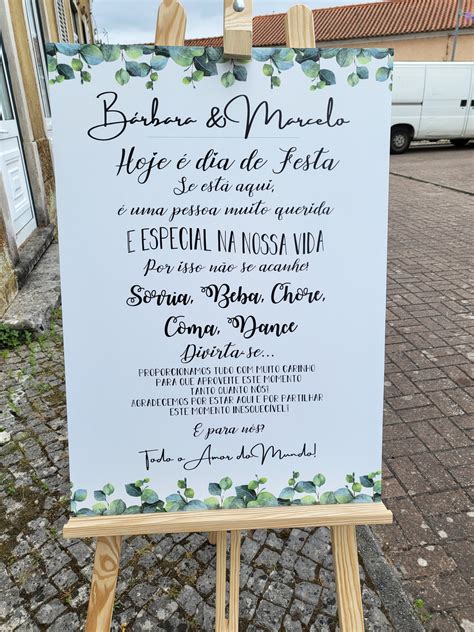 Bárbara & Marcelo
Hoje é dia de Festa
Se está aqui,
é uma pessoa muito querida
E ESPECIAL NA NOSSA VIDA
Por isso não se acanhe!
Sorria, Beba, Chore,
Coma, Dance
Divirta-se...
PROPORCIONAMOS TUDO COM MUITO CARINHO
PARA QUE APROVEITE ESTE MOMENTO
TANTO QUANTO NÓS!
AGRADECEMOS POR ESTAR AQUI E POR PARTILHAR
ESTE MOMENTO INESQUECÍVEL!
E para nós?
Todo o Amor do Mundo!